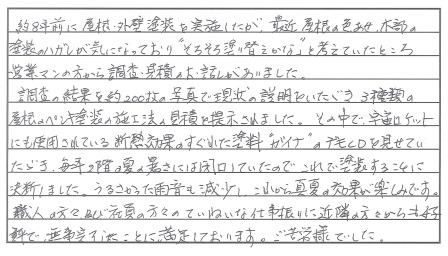 約8年前に屋根・外壁塗装を実施したが、最近屋根の色あせ、木部の
塗装のハガレが気になっており"そろそろ塗り替えかな"と考えていたところ
営業マンの方から調査・見積のお話しがありました。
調査の結果を約200枚の写真で現状の説明をいただき 3種類の
屋根のペンキ塗装の施工法の見積を提示されました。その中で、宇宙ロケット
にも使用されている断熱効果のすぐれた塗料"ガイナ"のデモCDを見せてい
ただき、毎年2階の夏の暑さには閉口していたのでこれで塗装することに
決断しました。うるさかった雨音も減少し、これから真夏の効果が楽しみです。
職人の方々及び社員の方々のていねいな仕事振りに近隣の方々からも好
評で、無事完了したことに満足しております。ご苦労様でした。